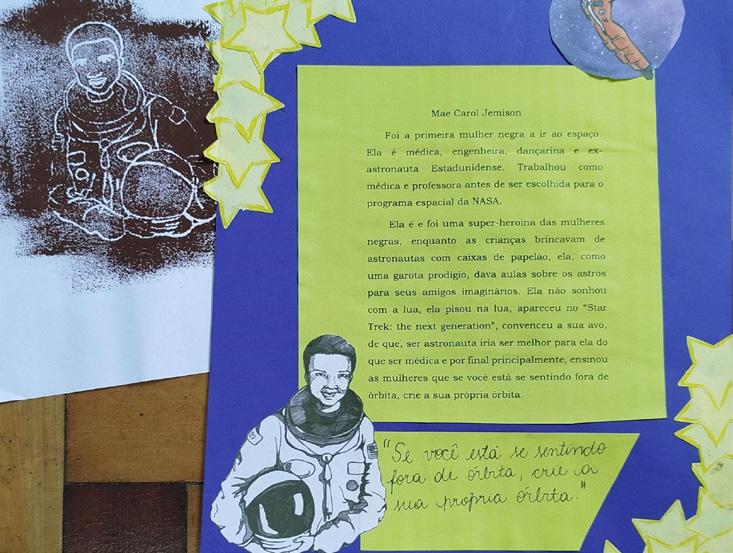 Mae Carol Jemison
Foi a primeira mulher negra a ir ao espaço.
Ela é médica, engenheira, dançarina e ex-
astronauta Estadunidense. Trabalhou como
médica e professora antes de ser escolhida para o
programa espacial da NASA.
Ela é e foi uma super-heroina das mulheres
negras, enquanto as crianças brincavam de
astronautas com caixas de papelão, ela, como
uma garota prodígio, dava aulas sobre os astros
para seus amigos imaginários. Ela não sonhou
com a lua, ela pisou na lua, apareceu no “Star
Trek: the next generation”, convenceu a sua avo,
de que, ser astronauta iria ser melhor para ela do
que ser médica e por final principalmente, ensinou
as mulheres que se você está se sentindo fora de
órbita, crie a sua própria órbita.
"Se você está se sentindo
fora de órbita, crie a
sua propria órbita."